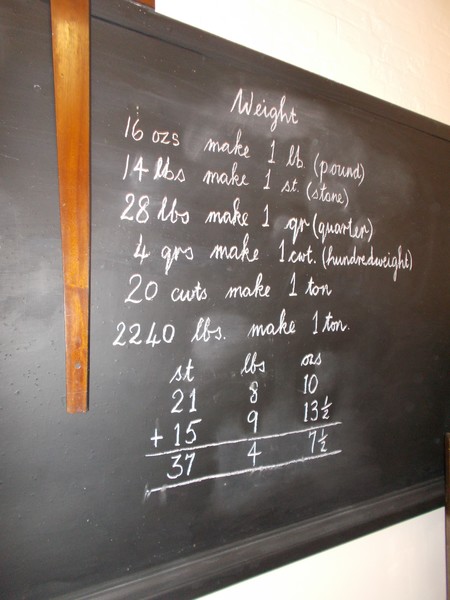 Weight
16 ozs make 1 lb. (pound)
14 lbs make 1 st. (stone)
28 lbs make 1 qr (quarter)
4 qrs make 1 cwt. (hundredweight)
20 cwts make 1 ton
2240 lbs. make 1 ton.
st lbs ozs
21 8 10
+ 15 9 13½
37 4 7½